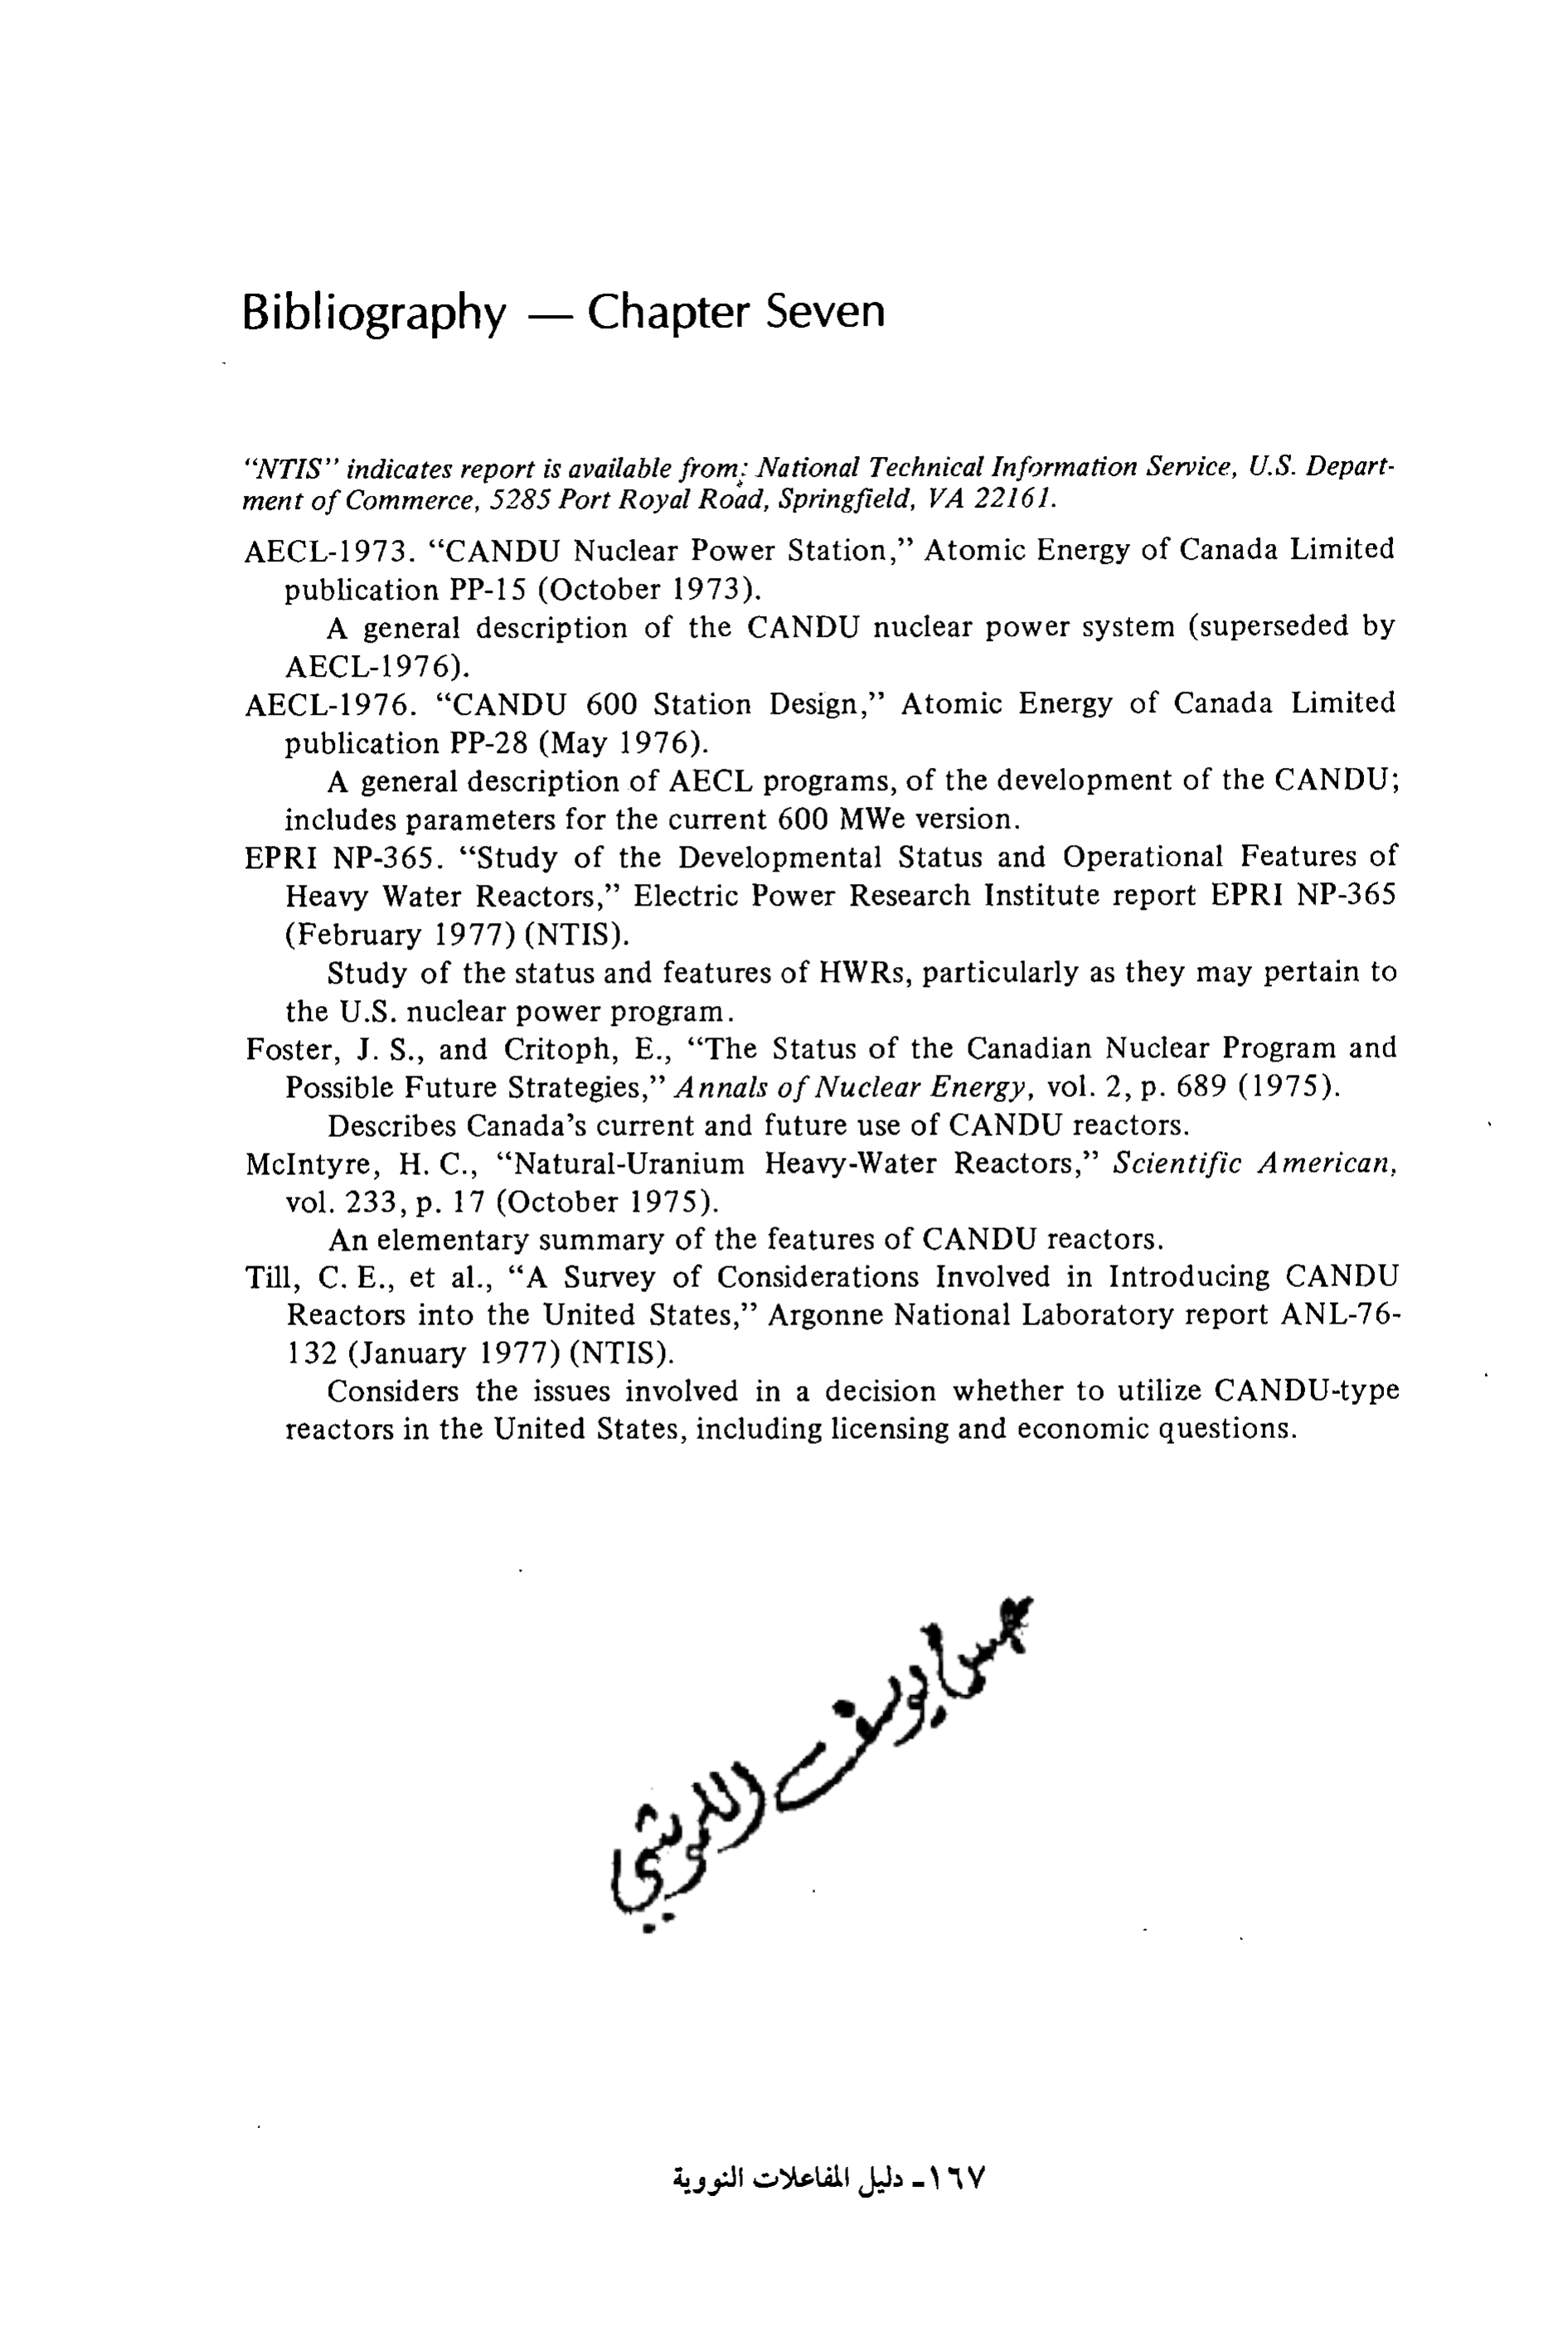 Bibliography — Chapter Seven
“NTIS” indicates report is available from: National Technical Information Service, U.S. Depart-
ment of Commerce, 5285 Port Royal Road, Springfield, VA 22161.
AECL-1973. “CANDU Nuclear Power Station,” Atomic Energy of Canada Limited
publication PP-15 (October 1973).
A general description of the CANDU nuclear power system (superseded by
AECL-1976).
AECL-1976. “CANDU 600 Station Design,” Atomic Energy of Canada Limited
publication PP-28 (May 1976).
A general description of AECL programs, of the development of the CANDU;
includes parameters for the current 600 MWe version.
EPRI NP-365. “Study of the Developmental Status and Operational Features of
Heavy Water Reactors,” Electric Power Research Institute report EPRI NP-365
(February 1977) (NTIS).
Study of the status and features of HWRs, particularly as they may pertain to
the U.S. nuclear power program.
Foster, J. S., and Critoph, E., “The Status of the Canadian Nuclear Program and
Possible Future Strategies,” Annals of Nuclear Energy, vol. 2, p. 689 (1975).
Describes Canada’s current and future use of CANDU reactors.
McIntyre, H. C., “Natural-Uranium Heavy-Water Reactors,” Scientific American,
vol. 233, p. 17 (October 1975).
An elementary summary of the features of CANDU reactors.
Till, C. E., et al., “A Survey of Considerations Involved in Introducing CANDU
Reactors into the United States,” Argonne National Laboratory report ANL-76-
132 (January 1977) (NTIS).
Considers the issues involved in a decision whether to utilize CANDU-type
reactors in the United States, including licensing and economic questions.
يوسف
١٦٧- دليل المفاعلات النووية